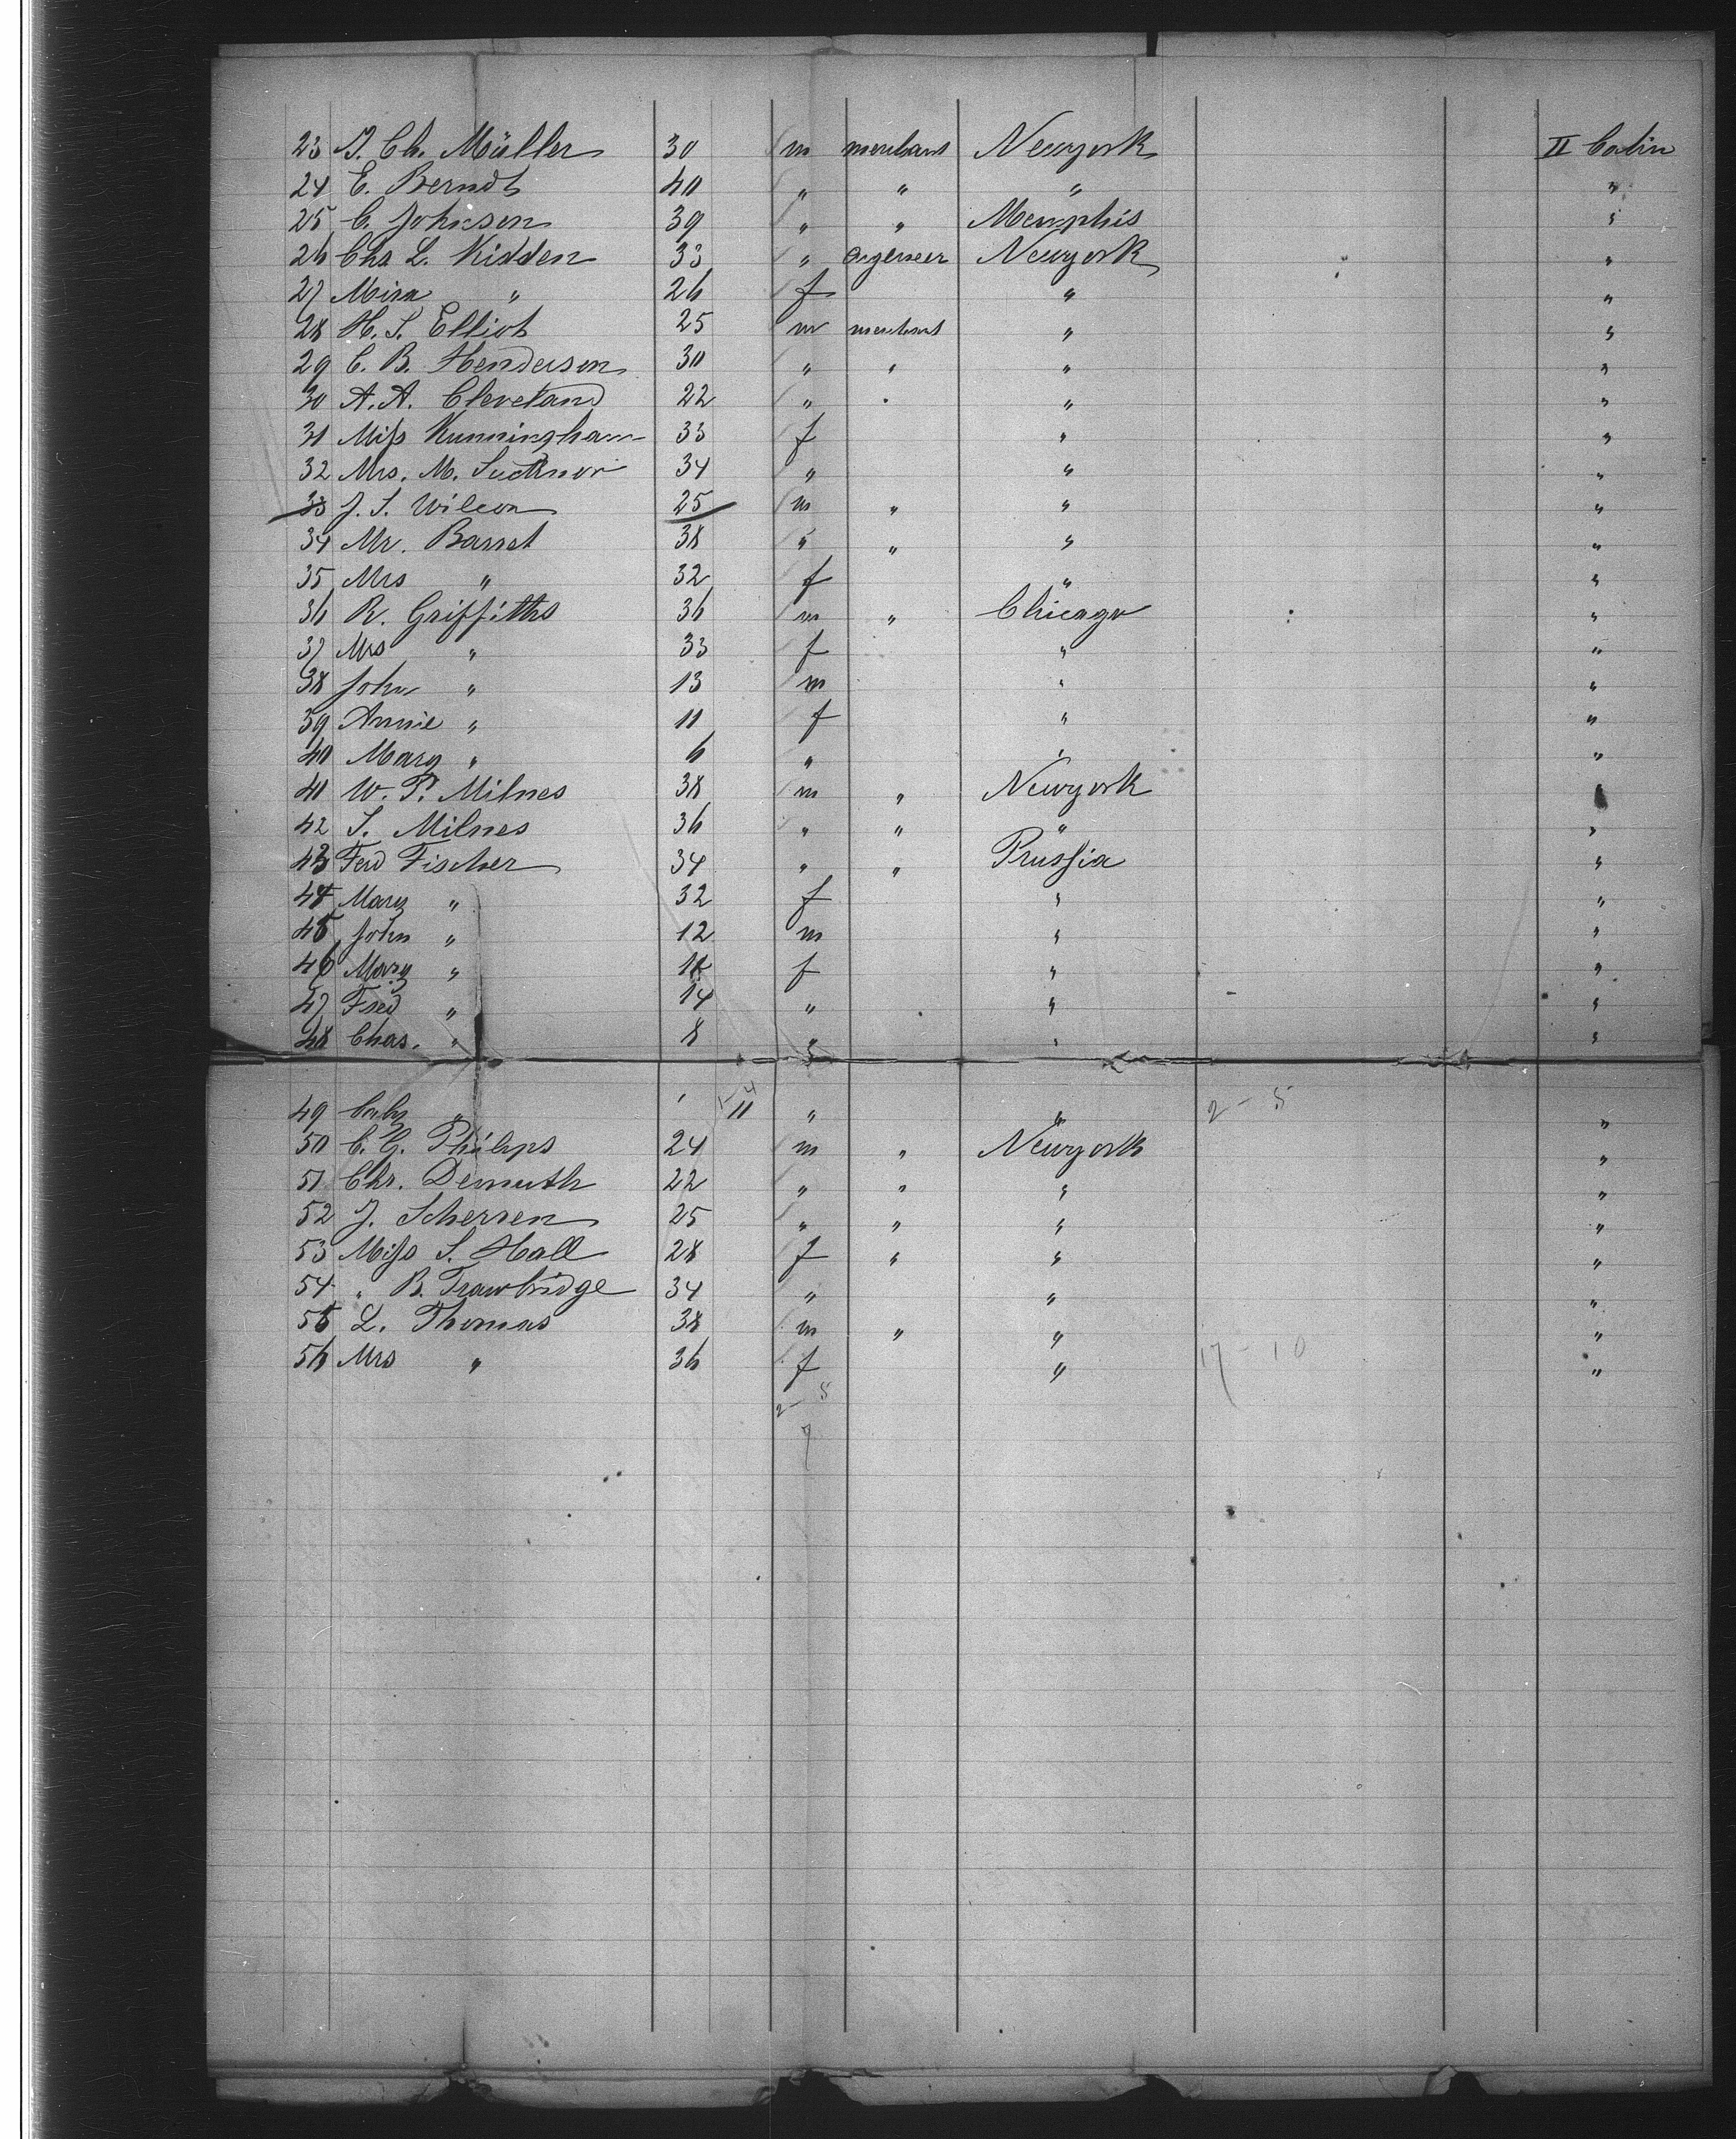 23 J. Ch. Müller 30 m merchant Newyork II Cabin
24 E. Berndt 40 " " " "
25 C. Johnson 39 " " Memphis "
26 Chs L. Kidden 33 " engeneer Newyork "
27 Mira " 26 f " "
28 H. S. Elliot 25 m merchant " "
29 C. B. Henderson 30 " " " "
30 A. A. Cleveland 22 " " " "
31 Miss Kunningham 33 f " "
32 Mrs. M. 34 " " "
33 J. S. Wilcon 25 m " " "
34 Mr. Barret 38 " " " "
35 Mrs " 32 f " "
36 R. Griffiths 36 m " Chicago "
37 Mrs " 33 f " "
38 John " 13 m " "
39 Annie " 11 f " "
40 Mary " 6 " " "
41 W. P. Milnes 38 m " Newyork "
42 S. Milnes 36 " " " "
43 Ferd Fischer 34 " " Prussia "
44 Mary " 32 f " "
45 John " 12 m " "
46 Mary " f " "
47 Fred " 14 " " "
48 Chas. " 8 " " "
49 " 11 " " 2 - 5 "
50 C. G. Philips 24 m " Newyork "
51 Chr. Demuth 22 " " " "
52 J. Scherren 25 " " " "
53 Miss S. Hall 28 f " " "
54 " B. Trawbridge 34 " " "
55 L. Thomas 38 m " " "
56 Mrs " 36 f " 17 - 10 "
2 - 5
7